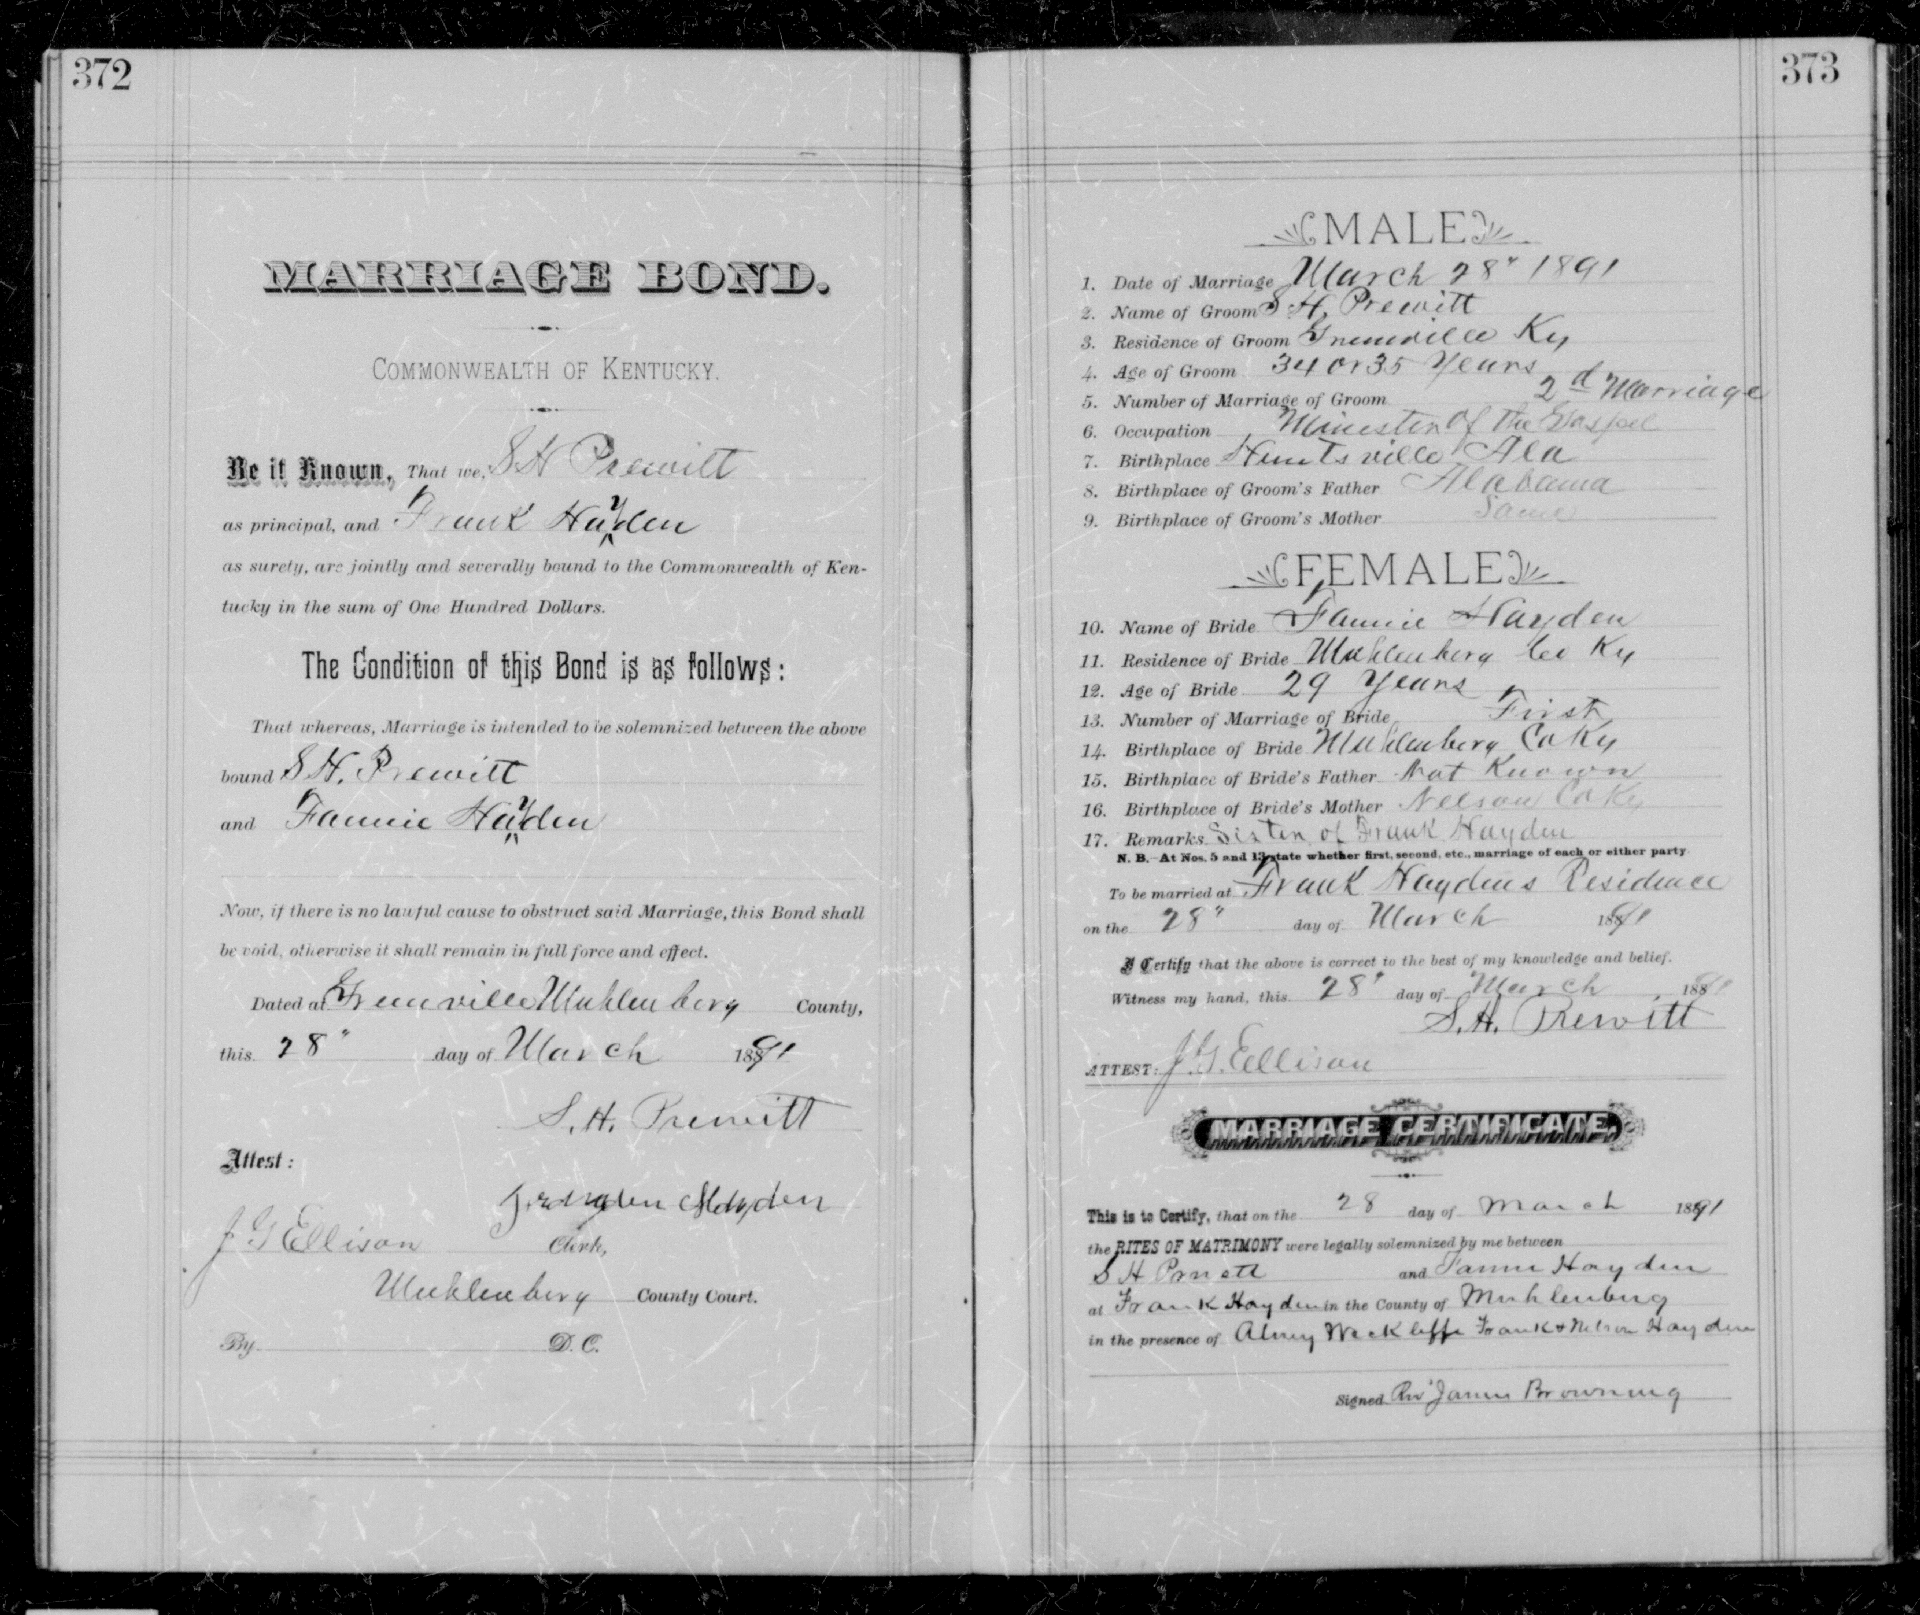 372
MARRIAGE BOND.
COMMONWEALTH OF KENTUCKY.
Be it Known, That we, S H Prewitt
as principal, and Frank Hayden
as surety, are jointly and severally bound to the Commonwealth of Ken-
tucky in the sum of One Hundred Dollars.
The Condition of this Bond is as follows:
That whereas, Marriage is intended to be solemnized between the above
bound S H. Prewitt
and Fannie Hayden
Now, if there is no lawful cause to obstruct said Marriage, this Bond shall
be void, otherwise it shall remain in full force and effect.
Dated at Greenville Muhlenberg County,
this 28" day of March 1891
S. H. Prewitt
Attest:
Hayden
J G Ellison Clerk,
Muhlenberg County Court.
By D. C.
373
MALE
1. Date of Marriage March 28" 1891
2. Name of Groom S H. Prewitt
3. Residence of Groom Greenville Ky
4. Age of Groom 34 or 35 Years
5. Number of Marriage of Groom 2d Marriage
6. Occupation Minister Of the Gospel
7. Birthplace Huntsville Ala
8. Birthplace of Groom's Father Alabama
9. Birthplace of Groom's Mother Same
FEMALE
10. Name of Bride Fannie Hayden
11. Residence of Bride Muhlenberg Co Ky
12. Age of Bride 29 Years
13. Number of Marriage of Bride First
14. Birthplace of Bride Muhlenberg Co Ky
15. Birthplace of Bride's Father Not Known
16. Birthplace of Bride's Mother Nelson Co Ky
17. Remarks Sister of Frank Hayden
N. B.—At Nos. 5 and 13 state whether first, second, etc., marriage of each or either party.
To be married at Frank Haydens Residence
on the 28" day of March 1891
I Certify that the above is correct to the best of my knowledge and belief.
Witness my hand, this 28" day of March, 1891
S. H. Prewitt
ATTEST: J. G. Ellison
MARRIAGE CERTIFICATE.
This is to Certify, that on the 28 day of March 1891
the RITES OF MATRIMONY were legally solemnized by me between
S H and Fannie Hayden
at Frank Hayden in the County of Muhlenberg
in the presence of Frank & Nelson Hayden
Signed Rev James Browning